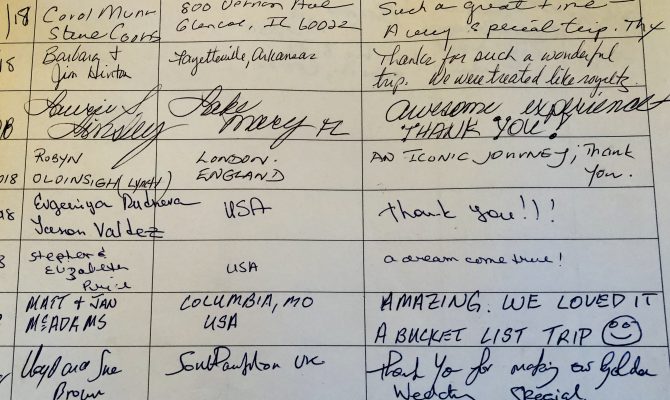 /18 Carol Munn 800 Vernon Ave Such a great time -
Steve Coons Glencoe, IL 60022 A very special trip. Thx
18 Barbara & Fayetteville, Arkansas Thanks for such a wonderful
Jim Hinton trip. We were treated like royalty.
Laurie S. Lake Awesome experience
Hinsley Mary FL THANK YOU!
ROBYN LONDON. AN ICONIC JOURNEY; Thank
018 OLDINSIGH (LYNCH) ENGLAND you.
18 Evgeniya Rudneva USA thank you!!!
Jason Valdez
Stephen & USA a dream come true!
Elizabeth
Price
MATT & JAN COLUMBIA, MO AMAZING. WE LOVED IT
McADAMS USA A BUCKET LIST TRIP
Lloyd and Sue Southampton UK thank You for making our Golden
Brown Wedding Special